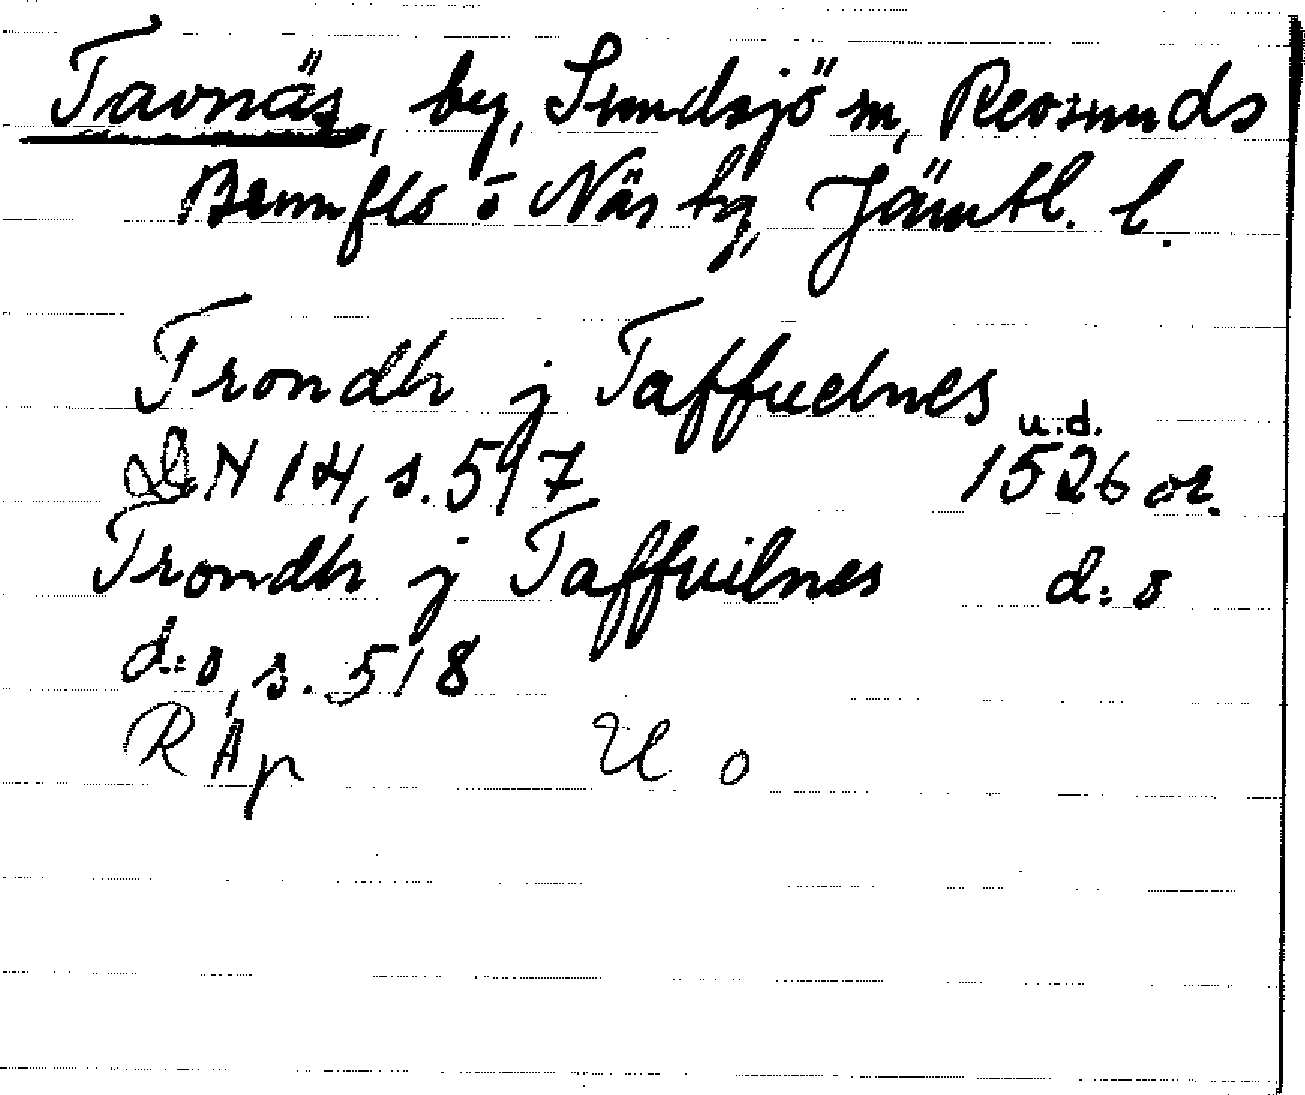 Tavnäs, by, Sundsjö sn, Revsunds
Brunflo o Näs tg, Jämtl. l.
Trondh j Taffuelnes
u.d.
DN 14, s. 517 1526 or.
Trondh j Taffuilnes d:o
d:o, s. 518
RAp U o